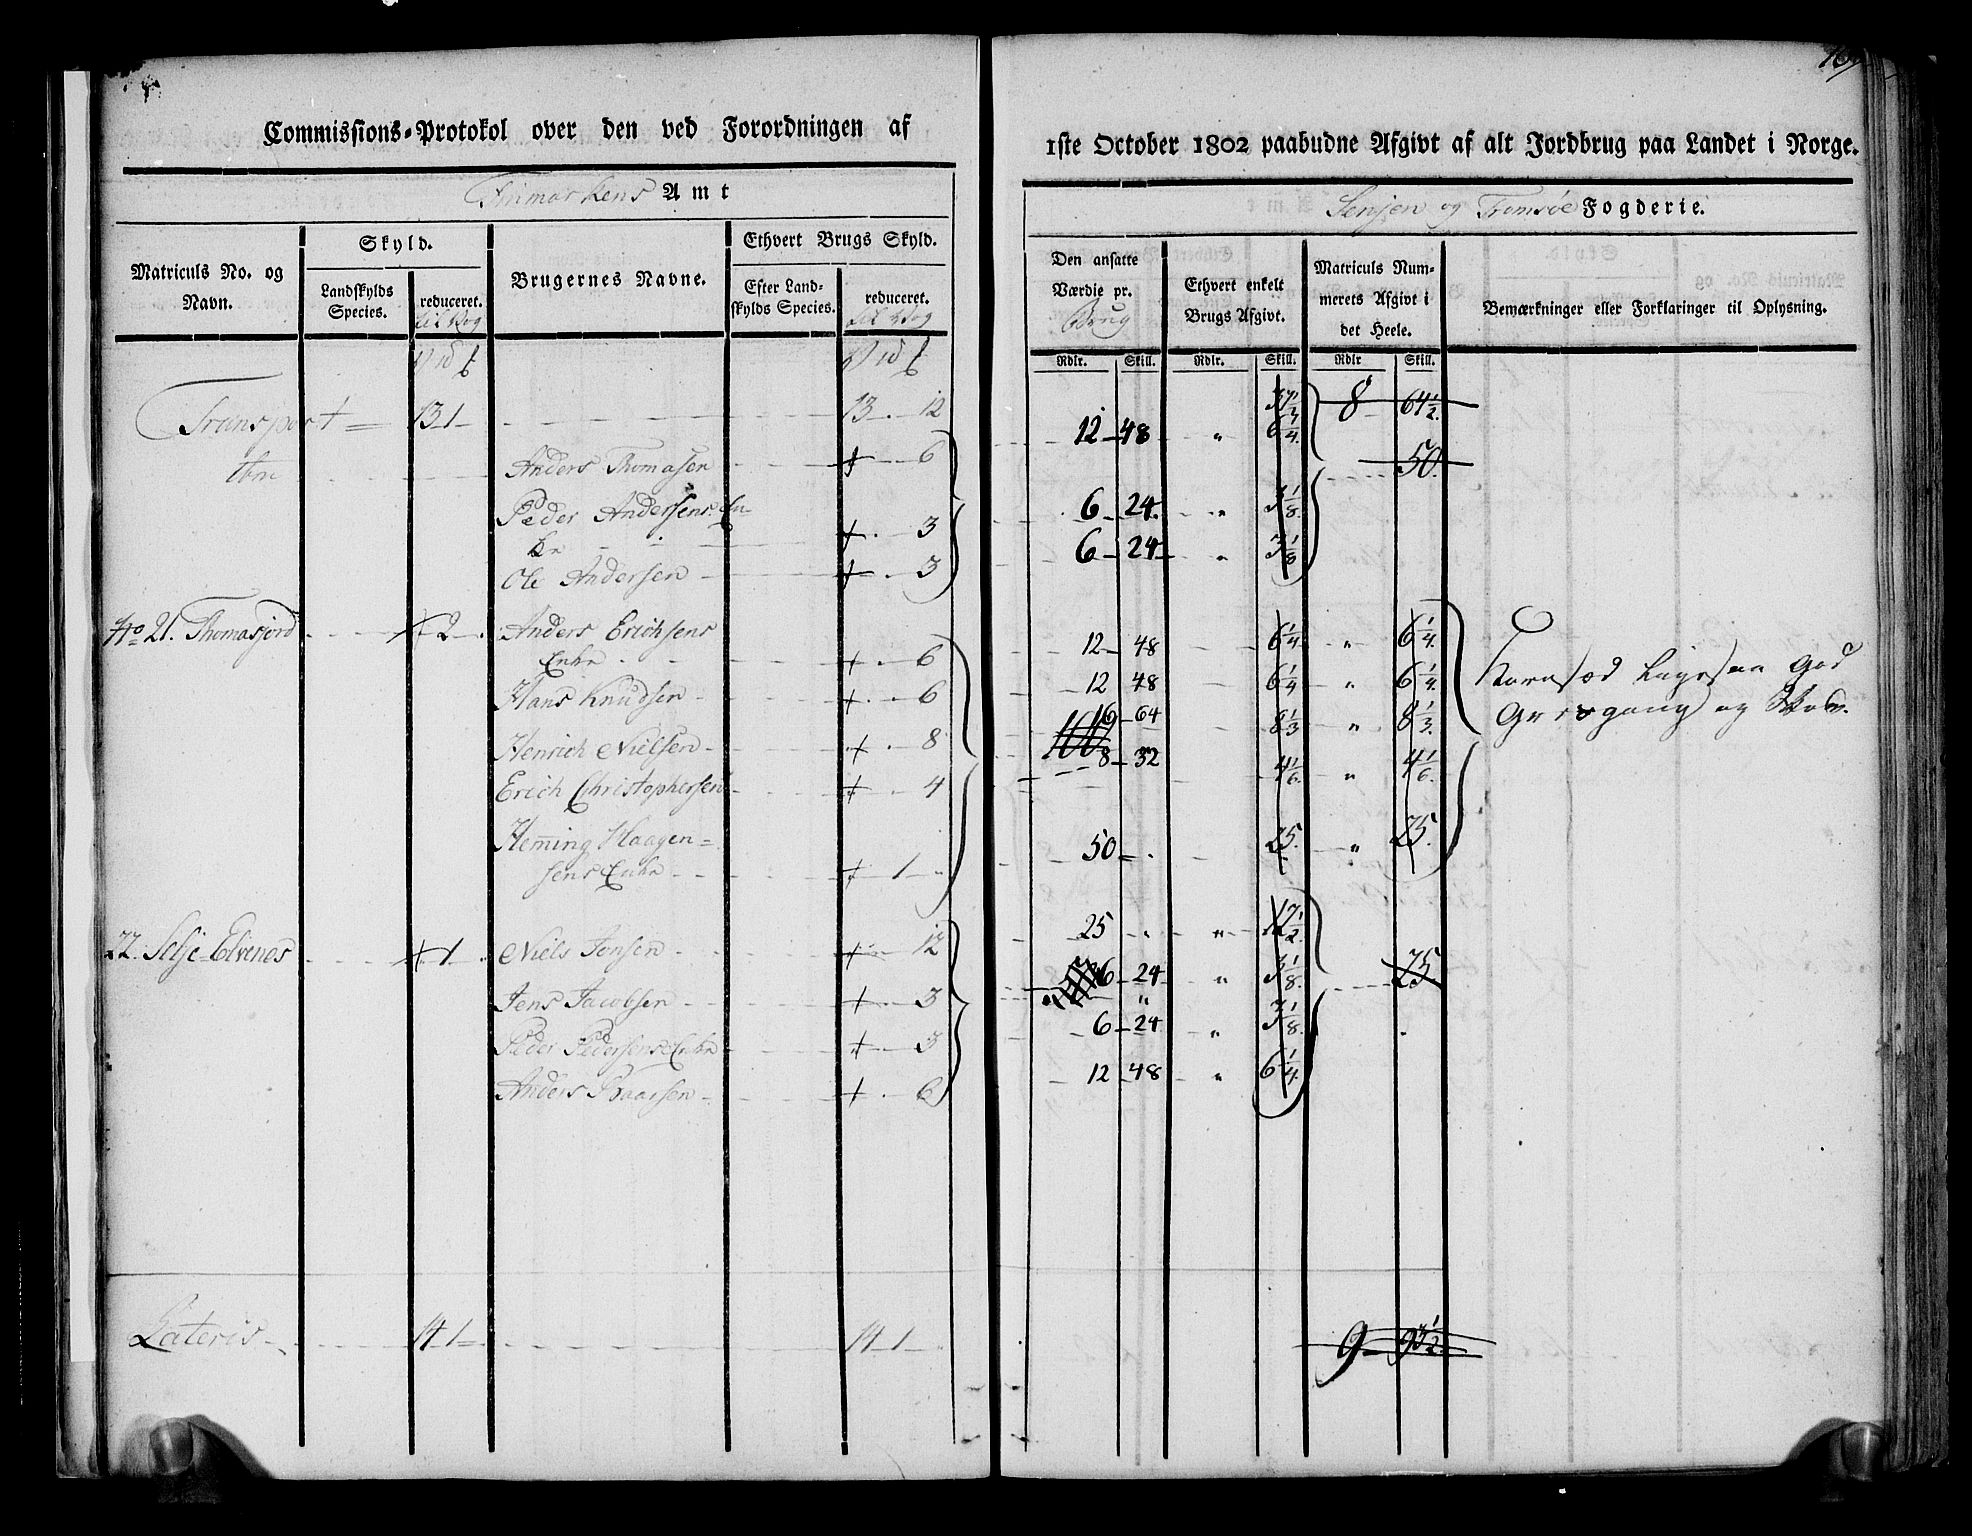 Commissions-Protokol over den ved Forordningen af
Finmarkens Amt
Matriculs No. og Navn.
Skyld.
Landskylds Species.
reduceret. til Vog
Brugernes Navne.
Ethvert Brugs Skyld.
Efter Landskylds Species.
reduceret. til Vog
Transport 13 1 13 12
Anders Thomasen 6
Peder Andersens En-
ke 3
Ole Andersen 3
No 21. Thomasjord 2 Anders Erichsens
Enke 6
Hans Knudsen 6
Henrich Nielsen 8
Erich Christophersen 4
Heming Haagen=
sens Enke 1
22. Selje-Elvenes 1 Niels Jonsen 12
Jens Jacobsen 3
Peder Pedersens Enke 3
Anders 6
Lateris 14 1 14 1
1ste October 1802 paabudne Afgivt af alt Jordbrug paa Landet i Norge.
Senjen og Tromsöe Fogderie.
Den ansatte Værdie pr. Brug
Ethvert enkelt Brugs Afgivt.
Matriculs Nummerets Afgivt i det Heele.
Bemærkninger eller Forklaringer til Oplysning.
Rdlr. Skill. Rdlr. Skill. Rdlr Skill.
8 64 1/2
12 48 " 6 1/4
50
6 24 " 3 1/8
6 24 " 3 1/8
12 48 6 1/4 " 6 1/4
12 48 6 1/4 " 6 1/4
16 64 8 1/3 " 8 1/3
8 32 4 1/6 " 4 1/6
50 25 " 25
Kornsæd ligesaa god
og Skov.
25 " 12 1/2
6 24 " 3 1/8 25
6 24 " 3 1/8
12 48 " 6 1/4
9 93 1/2